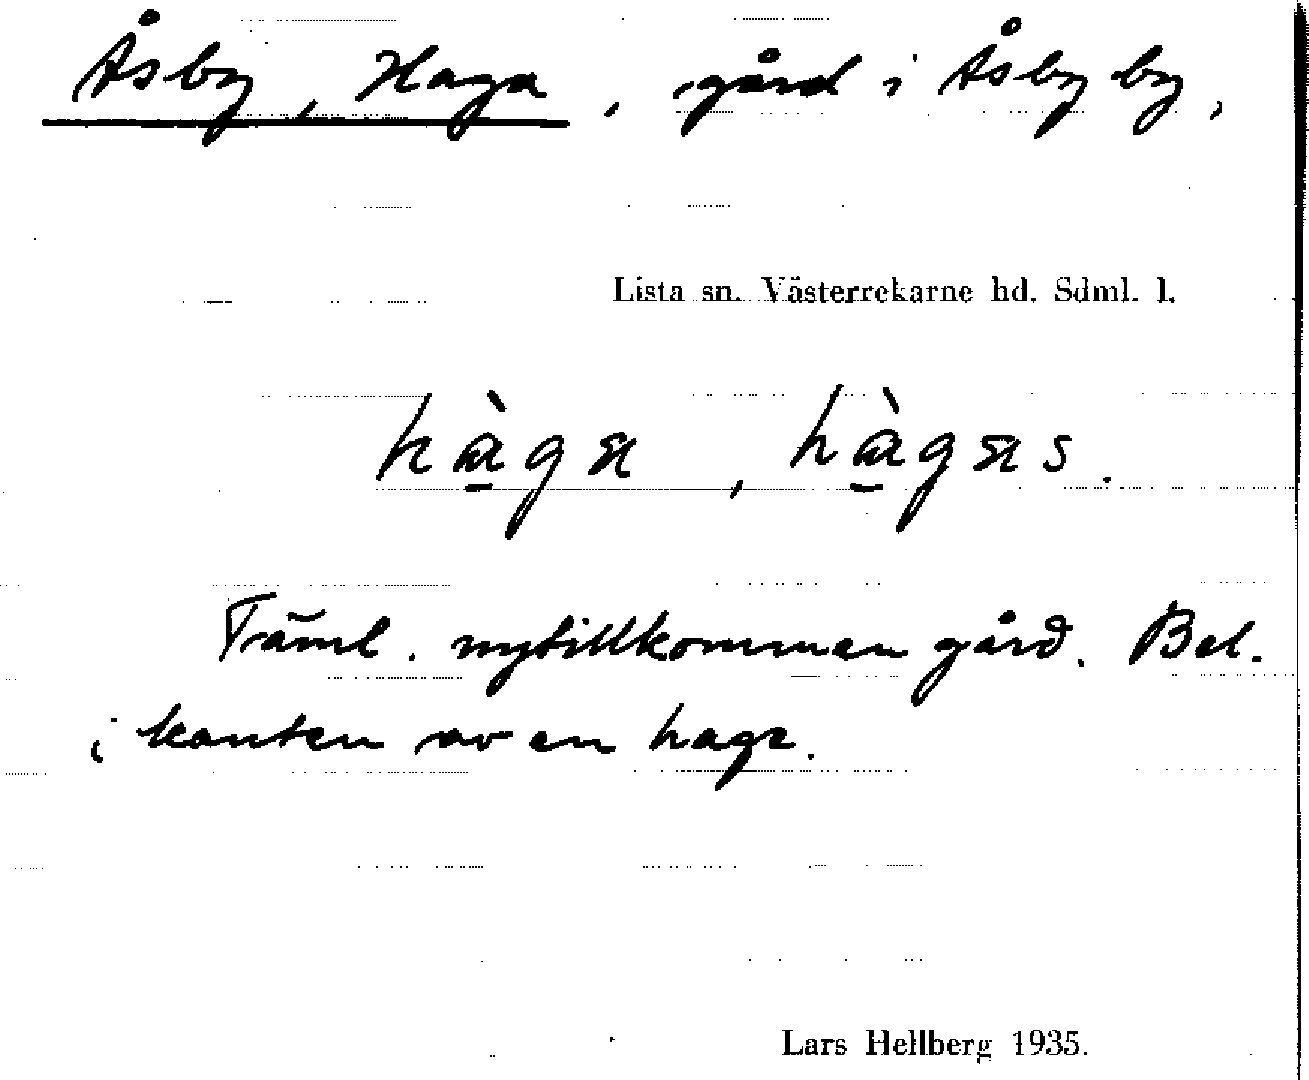 Åsby, Haga, gård i Åsby by,
Lista sn. Västerrekarne hd. Sdml. l.
hàga, hàgas.
Täml. nytillkommen gård. Bel.
i kanten av en hage.
Lars Hellberg 1935.